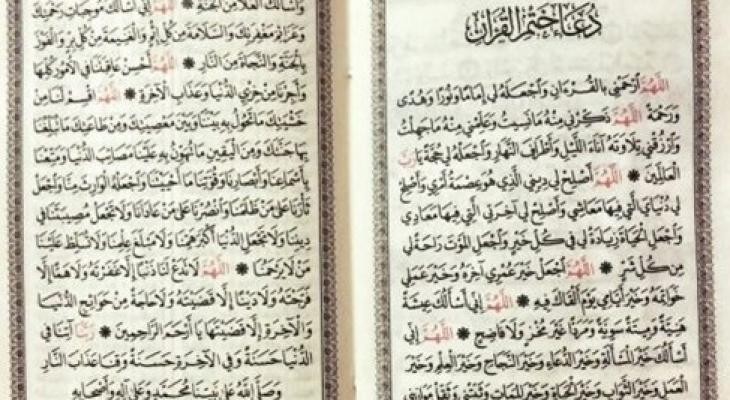 دُعَاءُ خَتْمِ الْقُرْآنِ
اللَّهُمَّ ارْحَمْنِي بِالْقُرْءَانِ وَاجْعَلْهُ لِي إِمَامًا وَنُورًا وَهُدًى
وَرَحْمَةً اللَّهُمَّ ذَكِّرْنِي مِنْهُ مَا نَسِيتُ وَعَلِّمْنِي مِنْهُ مَا جَهِلْتُ
وَارْزُقْنِي تِلَاوَتَهُ آنَاءَ اللَّيْلِ وَأَطْرَافَ النَّهَارِ وَاجْعَلْهُ لِي حُجَّةً يَا رَبَّ
الْعَالَمِينَ * اللَّهُمَّ أَصْلِحْ لِي دِينِي الَّذِي هُوَ عِصْمَةُ أَمْرِي وَأَصْلِحْ
لِي دُنْيَايَ الَّتِي فِيهَا مَعَاشِي وَأَصْلِحْ لِي آخِرَتِي الَّتِي فِيهَا مَعَادِي
وَاجْعَلِ الْحَيَاةَ زِيَادَةً لِي فِي كُلِّ خَيْرٍ وَاجْعَلِ الْمَوْتَ رَاحَةً لِي
مِنْ كُلِّ شَرٍّ * اللَّهُمَّ اجْعَلْ خَيْرَ عُمْرِي آخِرَهُ وَخَيْرَ عَمَلِي
خَوَاتِمَهُ وَخَيْرَ أَيَّامِي يَوْمَ أَلْقَاكَ فِيهِ * اللَّهُمَّ إِنِّي أَسْأَلُكَ عِيشَةً
هَنِيَّةً وَمِيتَةً سَوِيَّةً وَمَرَدًّا غَيْرَ مُخْزٍ وَلَا فَاضِحٍ * اللَّهُمَّ إِنِّي
أَسْأَلُكَ خَيْرَ الْمَسْأَلَةِ وَخَيْرَ الدُّعَاءِ وَخَيْرَ النَّجَاحِ وَخَيْرَ الْعِلْمِ وَخَيْرَ
الْعَمَلِ وَخَيْرَ الثَّوَابِ وَخَيْرَ الْحَيَاةِ وَخَيْرَ الْمَمَاتِ وَثَبِّتْنِي وَثَقِّلْ مَوَازِينِي
وَأَسْأَلُكَ الْعُلَا مِنَ الْجَنَّةِ * اللَّهُمَّ إِنِّي أَسْأَلُكَ مُوجِبَاتِ رَحْمَتِكَ
وَعَزَائِمَ مَغْفِرَتِكَ وَالسَّلَامَةَ مِنْ كُلِّ إِثْمٍ وَالْغَنِيمَةَ مِنْ كُلِّ بِرٍّ وَالْفَوْزَ
بِالْجَنَّةِ وَالنَّجَاةَ مِنَ النَّارِ * اللَّهُمَّ أَحْسِنْ عَاقِبَتَنَا فِي الْأُمُورِ كُلِّهَا
وَأَجِرْنَا مِنْ خِزْيِ الدُّنْيَا وَعَذَابِ الْآخِرَةِ * اللَّهُمَّ اقْسِمْ لَنَا مِنْ
خَشْيَتِكَ مَا تَحُولُ بِهِ بَيْنَنَا وَبَيْنَ مَعْصِيَتِكَ وَمِنْ طَاعَتِكَ مَا تُبَلِّغُنَا
بِهَا جَنَّتَكَ وَمِنَ الْيَقِينِ مَا تُهَوِّنُ بِهِ عَلَيْنَا مَصَائِبَ الدُّنْيَا وَمَتِّعْنَا
بِأَسْمَاعِنَا وَأَبْصَارِنَا وَقُوَّتِنَا مَا أَحْيَيْتَنَا وَاجْعَلْهُ الْوَارِثَ مِنَّا وَاجْعَلْ
ثَأْرَنَا عَلَى مَنْ ظَلَمَنَا وَانْصُرْنَا عَلَى مَنْ عَادَانَا وَلَا تَجْعَلْ مُصِيبَتَنَا فِي
دِينِنَا وَلَا تَجْعَلِ الدُّنْيَا أَكْبَرَ هَمِّنَا وَلَا مَبْلَغَ عِلْمِنَا وَلَا تُسَلِّطْ عَلَيْنَا
مَنْ لَا يَرْحَمُنَا * اللَّهُمَّ لَا تَدَعْ لَنَا ذَنْبًا إِلَّا غَفَرْتَهُ وَلَا هَمًّا إِلَّا
فَرَّجْتَهُ وَلَا دَيْنًا إِلَّا قَضَيْتَهُ وَلَا حَاجَةً مِنْ حَوَائِجِ الدُّنْيَا
وَالْآخِرَةِ إِلَّا قَضَيْتَهَا يَا أَرْحَمَ الرَّاحِمِينَ * رَبَّنَا آتِنَا فِي
الدُّنْيَا حَسَنَةً وَفِي الْآخِرَةِ حَسَنَةً وَقِنَا عَذَابَ النَّارِ
وَصَلَّى اللَّهُ عَلَى نَبِيِّنَا مُحَمَّدٍ وَعَلَى آلِهِ وَأَصْحَابِهِ